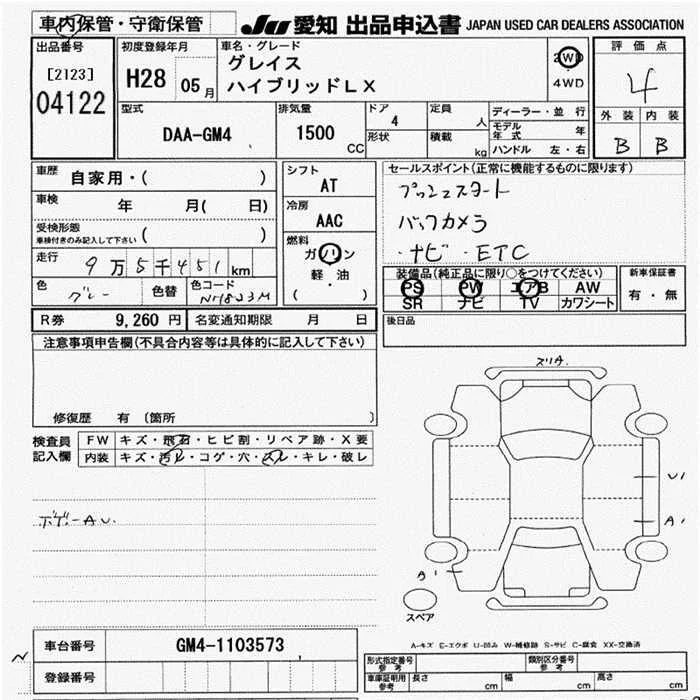 車内保管・守衛保管
JU 愛知 出品申込書 JAPAN USED CAR DEALERS ASSOCIATION
出品番号
[2123]
04122
初度登録年月
H28 05月
車名・グレード
グレイス
ハイブリッドLX
2WD
4WD
評価点
4
外装 内装
B B
型式
DAA-GM4
排気量
1500 CC
ドア
4
形状
定員
人
積載
kg
ディーラー・並行
モデル年式 年
ハンドル 左・右
車歴
自家用・( )
車検
年 月( 日)
受検形態
車検付きのみ記入して下さい ( )
走行
9万5千451km
色
グレー
色替
色コード
NH823M
シフト
AT
冷房
AAC
燃料
ガソリン
軽・油
( ・ )
セールスポイント(正常に機能するものに限ります)
プッシュスタート
バックカメラ
・ナビ・ETC
装備品(純正品に限り○をつけてください)
PS PW エアB AW
SR ナビ TV カワシート
新車保証書
有・無
後日品
R券 9,260円
名変通知期限 月 日
注意事項申告欄(不具合内容等は具体的に記入して下さい)
修復歴 有 〔箇所 〕
検査員記入欄
FW キズ・飛石・ヒビ割・リペア跡・X要
内装 キズ・汚レ・コゲ・穴・スレ・キレ・破レ
ボデーAU.
スリA.
U1
A1
A1
スペア
A-キズ E-エクボ U-凹み W-補修跡 S-サビ C-腐食 XX-交換済
車台番号 GM4-1103573
登録番号
形式指定番号参考
類別区分番号参考
車庫証明用参考
長さ cm
幅 cm
高さ cm